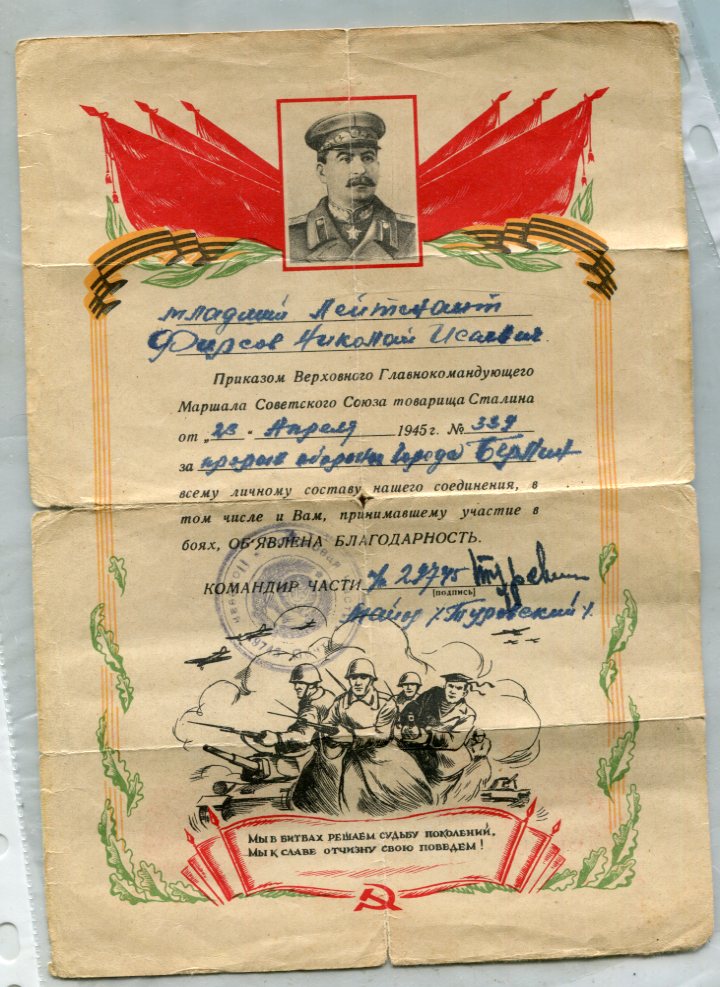 младший лейтенант
Фирсов Николай Исаевич
Приказом Верховного Главнокомандующего
Маршала Советского Союза товарища Сталина
от „23“ Апреля 1945 г. № 339
за прорыв обороны города Берлин
всему личному составу нашего соединения, в
том числе и Вам, принимавшему участие в
боях, ОБ'ЯВЛЕНА БЛАГОДАРНОСТЬ.
КОМАНДИР ЧАСТИ п/п 29745
(подпись)
майор /Туровский/.
МЫ В БИТВАХ РЕШАЕМ СУДЬБУ ПОКОЛЕНИЙ,
МЫ К СЛАВЕ ОТЧИЗНУ СВОЮ ПОВЕДЕМ!